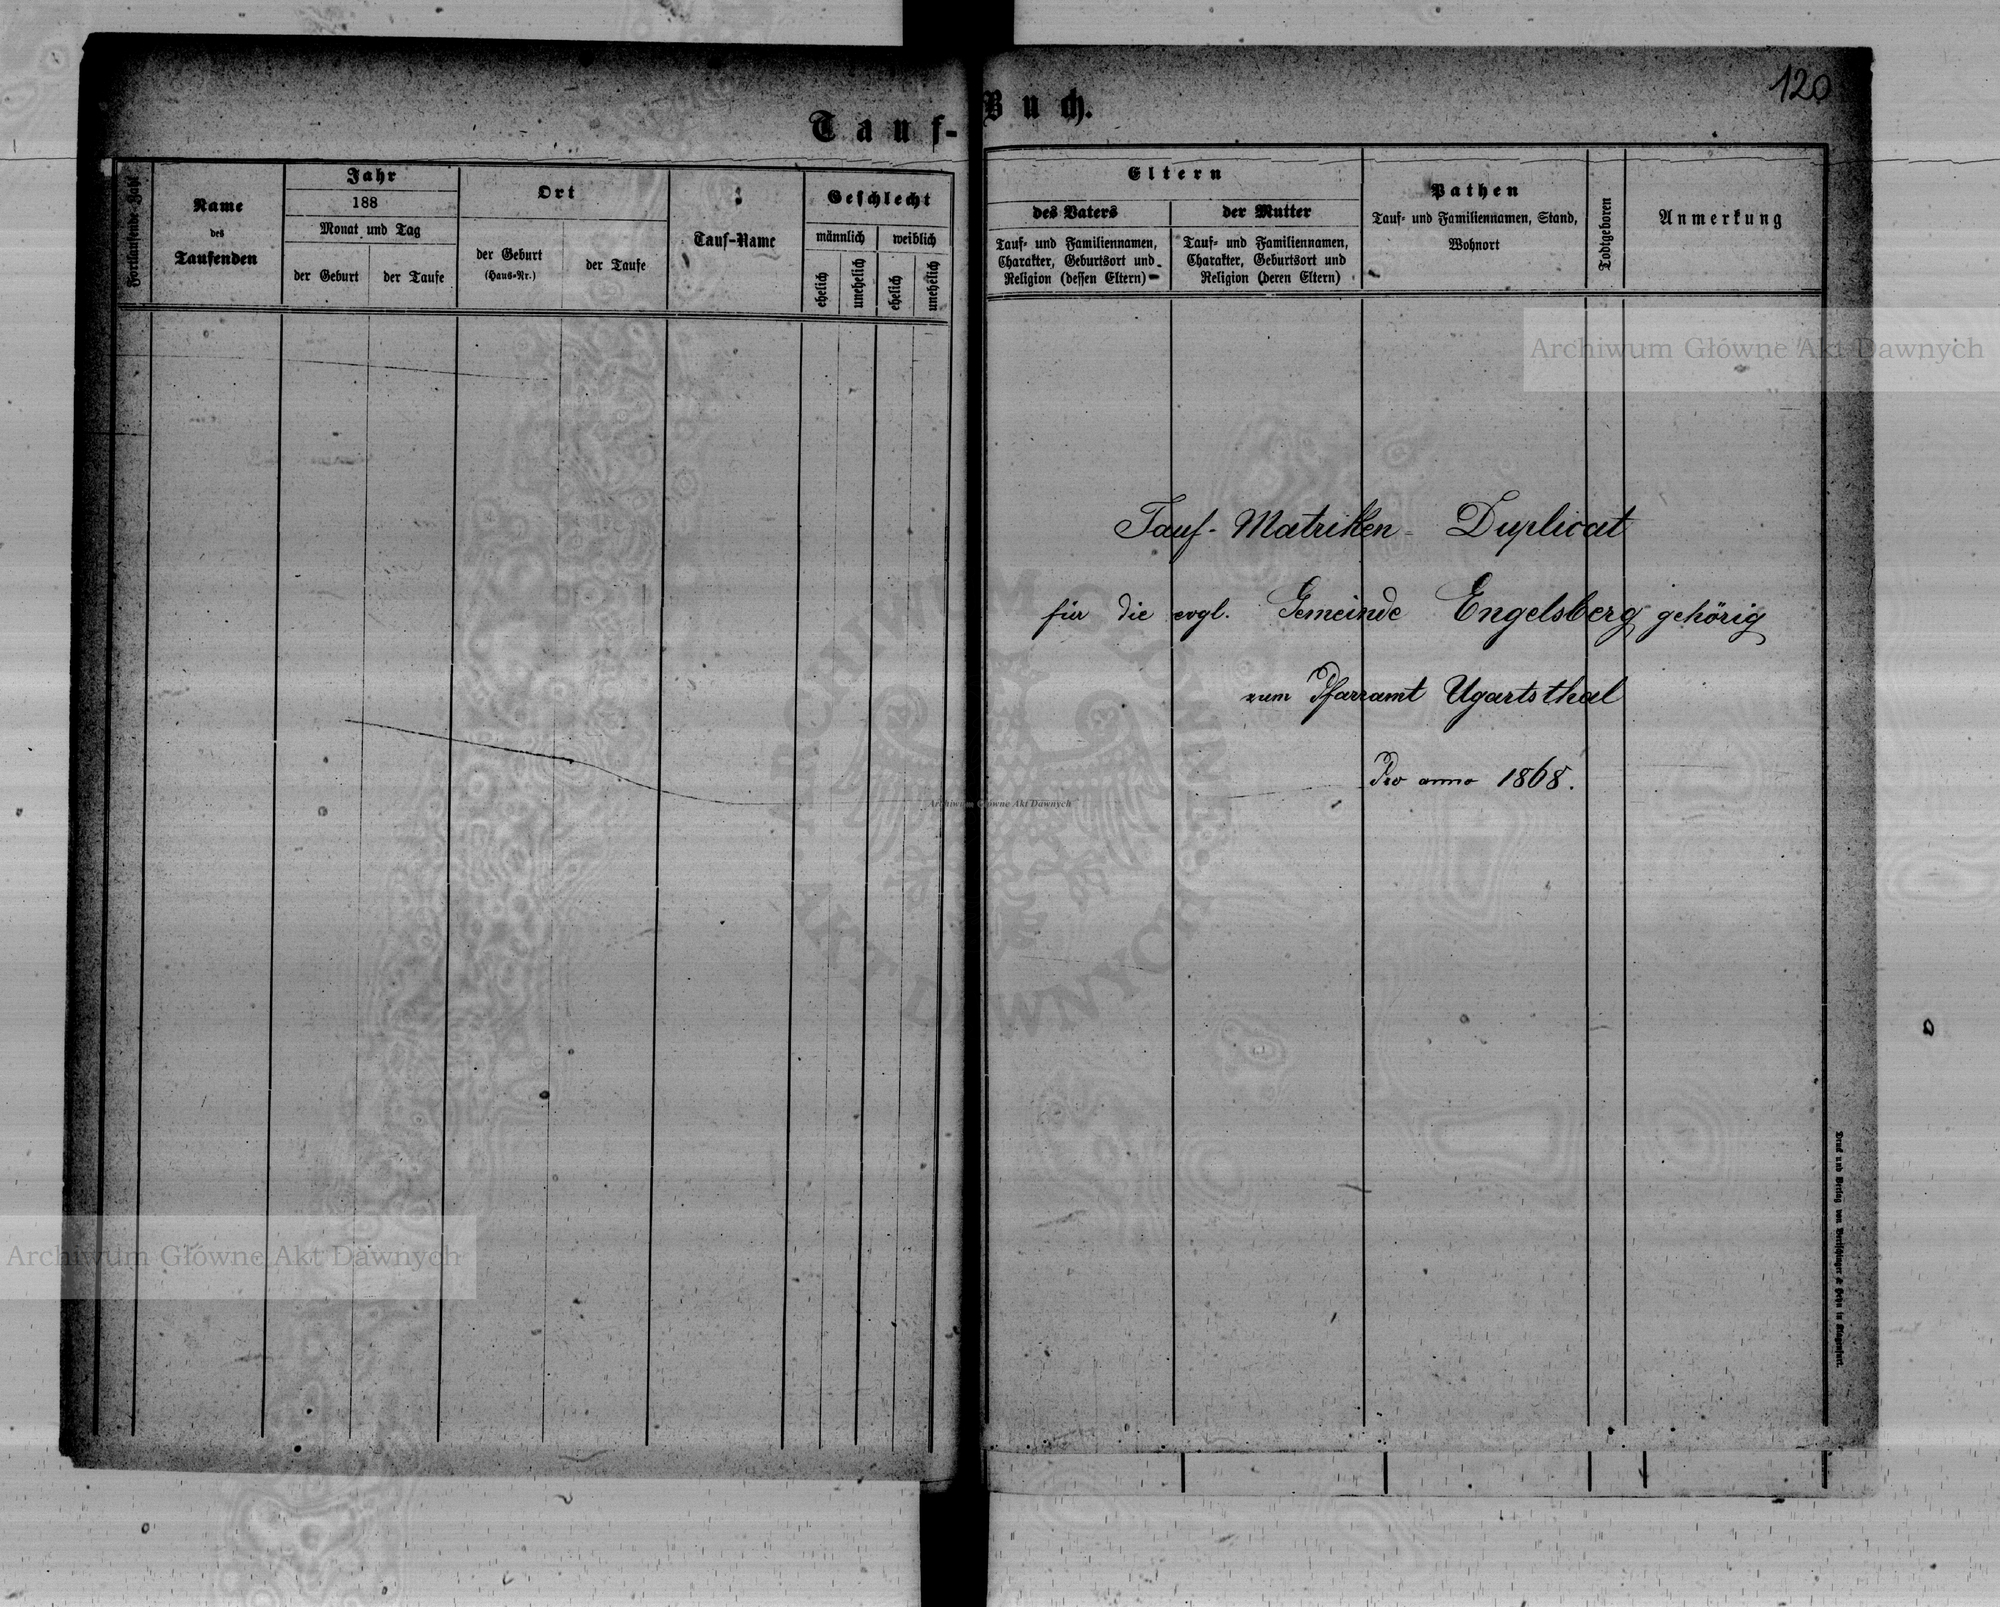 120
Tauf-Buch.
Fortlaufende Zahl
Name
des
Taufenden
Jahr
188
Monat und Tag
der Geburt
der Taufe
Ort
der Geburt
(Haus-Nr.)
der Taufe
Tauf-Name
Geschlecht
männlich
weiblich
ehelich
unehelich
ehelich
unehelich
Eltern
des Vaters
Tauf- und Familiennamen,
Charakter, Geburtsort und
Religion (dessen Eltern)
der Mutter
Tauf- und Familiennamen,
Charakter, Geburtsort und
Religion (deren Eltern)
Pathen
Tauf- und Familiennamen, Stand,
Wohnort
Todtgeboren
Anmerkung
Archiwum Główne Akt Dawnych
Tauf-Matriken-Duplicat
für die evgl. Gemeinde Engelsberg gehörig
zum Pfarramt Ugartsthal
Pro anno 1868.
ARCHIWUM GŁÓWNE AKT DAWNYCH
Archiwum Główne Akt Dawnych
Archiwum Główne Akt Dawnych
Druck und Verlag von Bertschinger & Heyn in Klagenfurt.